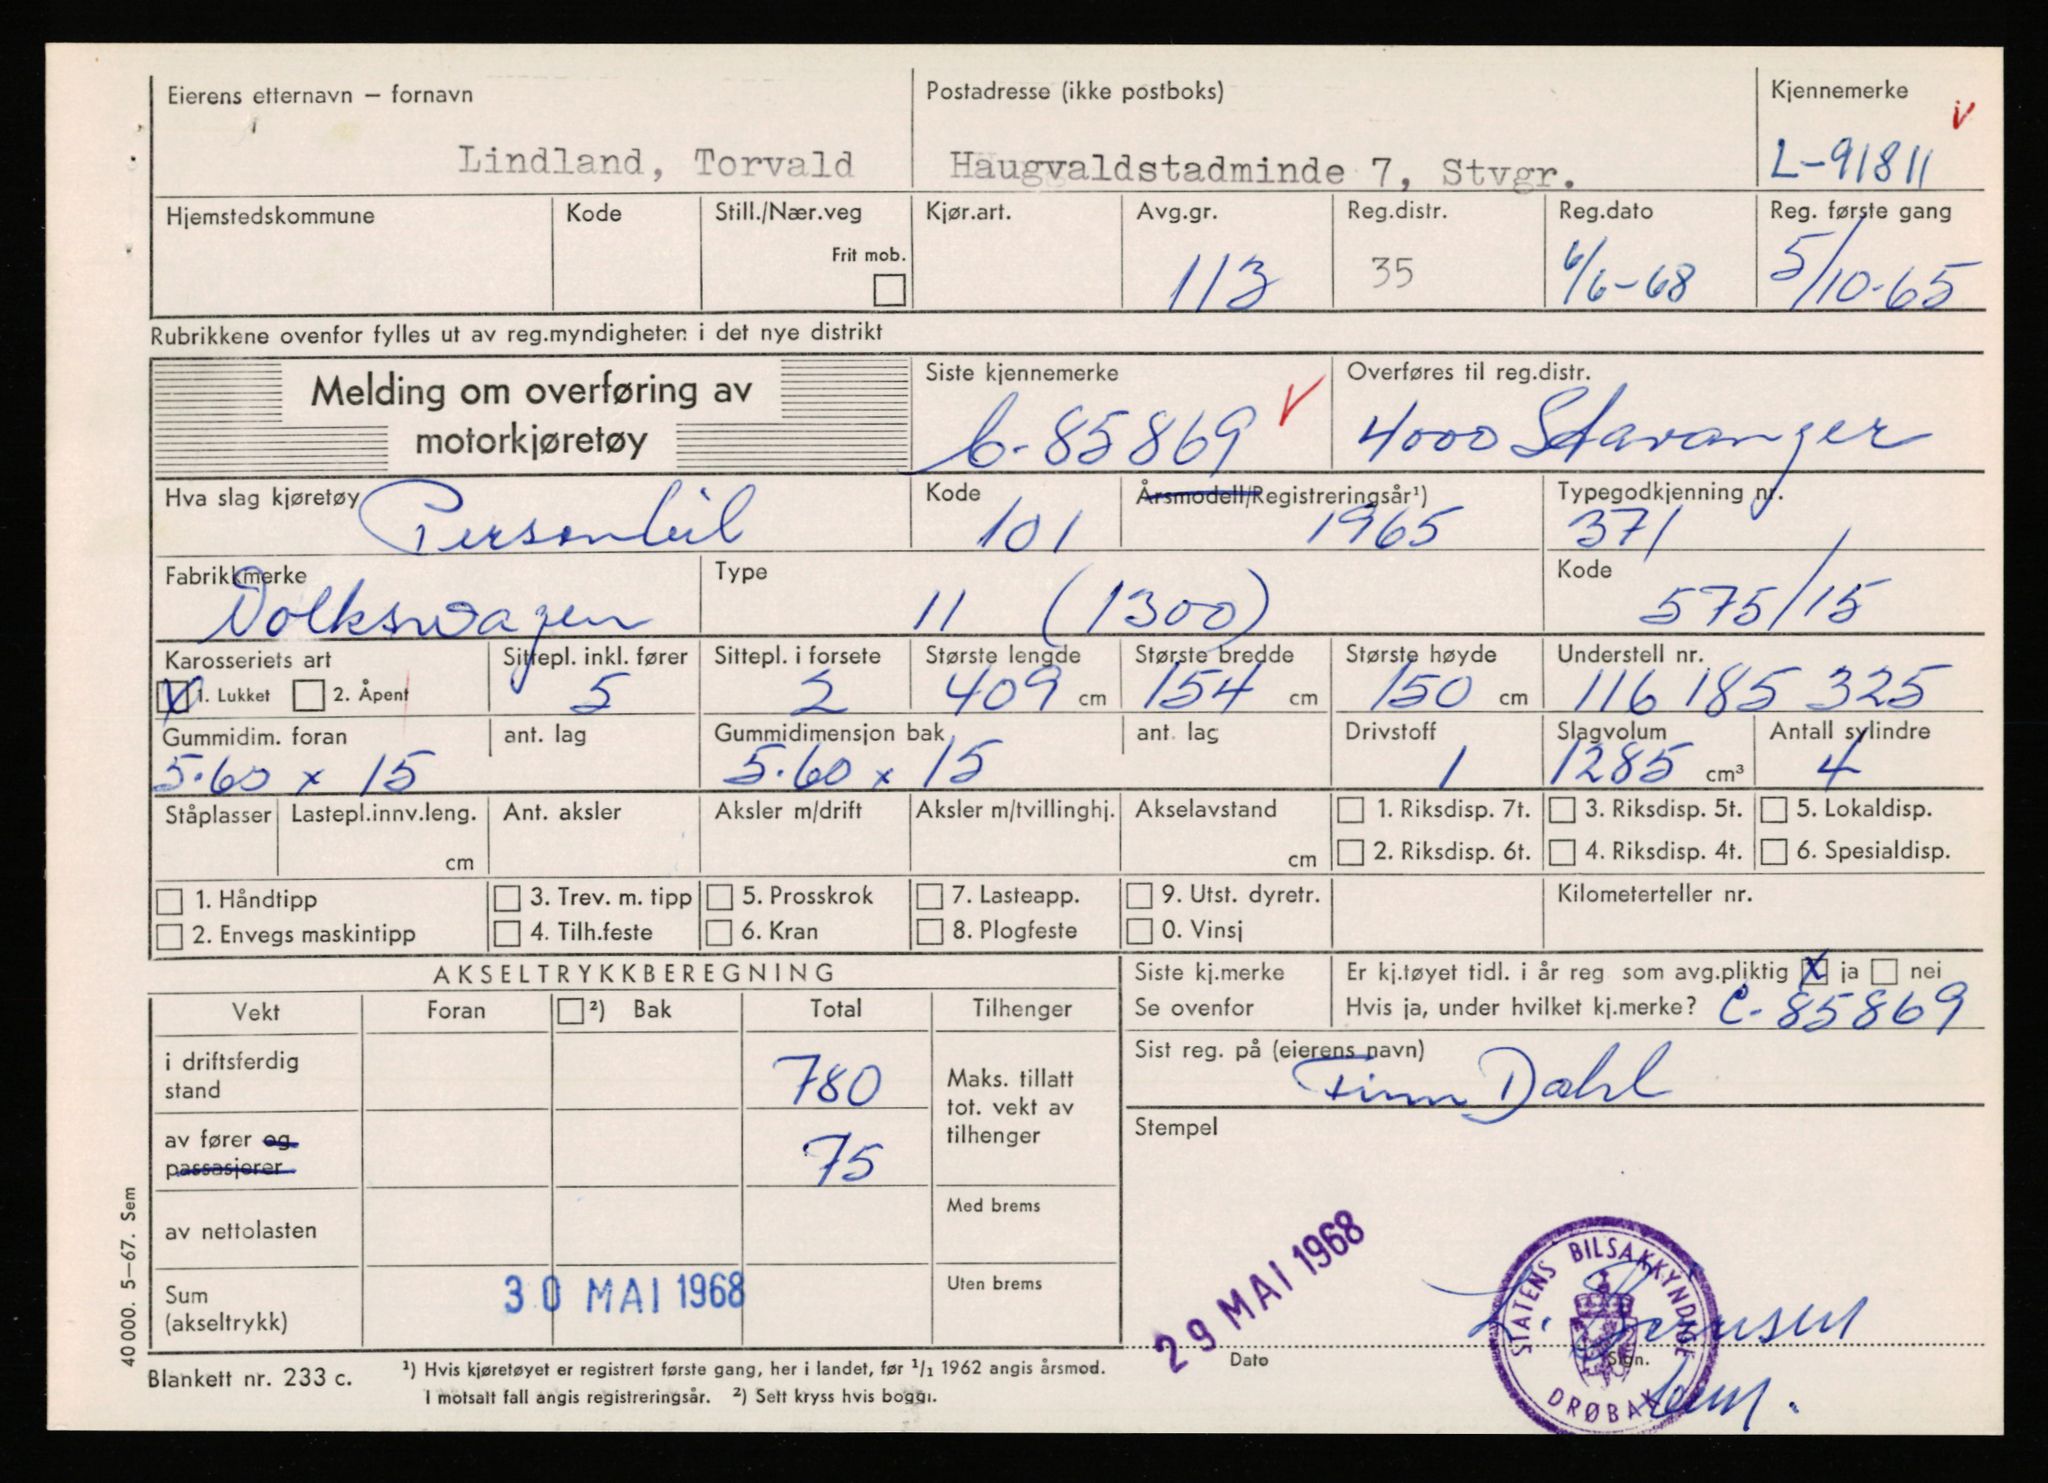 Eierens etternavn – fornavn
Lindland, Torvald
Postadresse (ikke postboks)
Haugvaldstadminde 7, Stvgr.
Kjennemerke
L-91811
Hjemstedskommune
Kode
Still./Nær.veg
Frit mob.
Kjør.art.
Avg.gr.
113
Reg.distr.
35
Reg.dato
6/6-68
Reg. første gang
5/10-65
Rubrikkene ovenfor fylles ut av reg.myndigheten i det nye distrikt
Melding om overføring av
motorkjøretøy
Siste kjennemerke
C-85869
Overføres til reg.distr.
4000 Stavanger
Hva slag kjøretøy
Personbil
Kode
101
Årsmodell/Registreringsår¹)
1965
Typegodkjenning nr.
371
Fabrikkmerke
Volkswagen
Type
11 (1300)
Kode
575/15
Karosseriets art
1. Lukket 2. Åpent
Sittepl. inkl. fører
5
Sittepl. i forsete
2
Største lengde
409 cm
Største bredde
154 cm
Største høyde
150 cm
Understell nr.
116 185 325
Gummidim. foran
5.60 x 15
ant. lag
Gummidimensjon bak
5.60 x 15
ant. lag
Drivstoff
1
Slagvolum
1285 cm³
Antall sylindre
4
Ståplasser
Lastepl.innv.leng.
cm
Ant. aksler
Aksler m/drift
Aksler m/tvillinghj.
Akselavstand
cm
1. Riksdisp. 7t. 3. Riksdisp. 5t. 5. Lokaldisp.
2. Riksdisp. 6t. 4. Riksdisp. 4t. 6. Spesialdisp.
1. Håndtipp 3. Trev. m. tipp 5. Prosskrok 7. Lasteapp. 9. Utst. dyretr.
2. Envegs maskintipp 4. Tilh.feste 6. Kran 8. Plogfeste 0. Vinsj
Kilometerteller nr.
AKSELTRYKKBEREGNING
Vekt Foran ²) Bak Total Tilhenger
i driftsferdig
stand
780
av fører og
passasjerer
75
av nettolasten
Sum
(akseltrykk)
30 MAI 1968
Maks. tillatt
tot. vekt av
tilhenger
Med brems
Uten brems
Siste kj.merke
Se ovenfor
Er kj.tøyet tidl. i år reg som avg.pliktig ja nei
Hvis ja, under hvilket kj.merke? C-85869
Sist reg. på (eierens navn)
Finn Dahl
Stempel
29 MAI 1968
STATENS BILSAKKYNDIGE
DRØBAK
Dato
Sign.
40 000. 5–67. Sem
Blankett nr. 233 c.
¹) Hvis kjøretøyet er registrert første gang, her i landet, før 1/1 1962 angis årsmod.
I motsatt fall angis registreringsår. ²) Sett kryss hvis boggi.